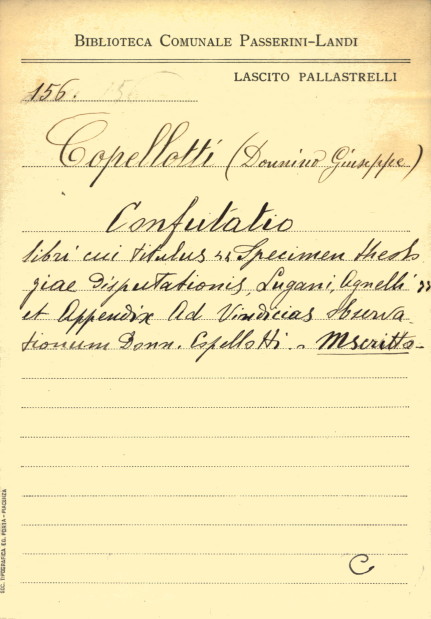 BIBLIOTECA COMUNALE PASSERINI-LANDI
LASCITO PALLASTRELLI
156. 156
Copellotti (Donnino Giuseppe)
Confutatio
libri cui titulus „ Specimen theolo
giae Disputationis, Lugani, Agnelli „
et Appendix Ad Vindicias Observa
tionum Donn. Copellotti. - Mscritta -
C
SOC. TIPOGRAFICA ED. PORTA - PIACENZA